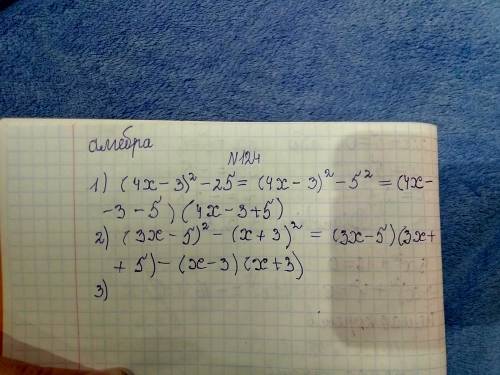 алгебра
N124
1) (4x-3)²-25=(4x-3)²-5²=(4x-
-3-5)(4x-3+5)
2) (3x-5)²-(x+3)²=(3x-5)(3x+
+5)-(x-3)(x+3)
3)